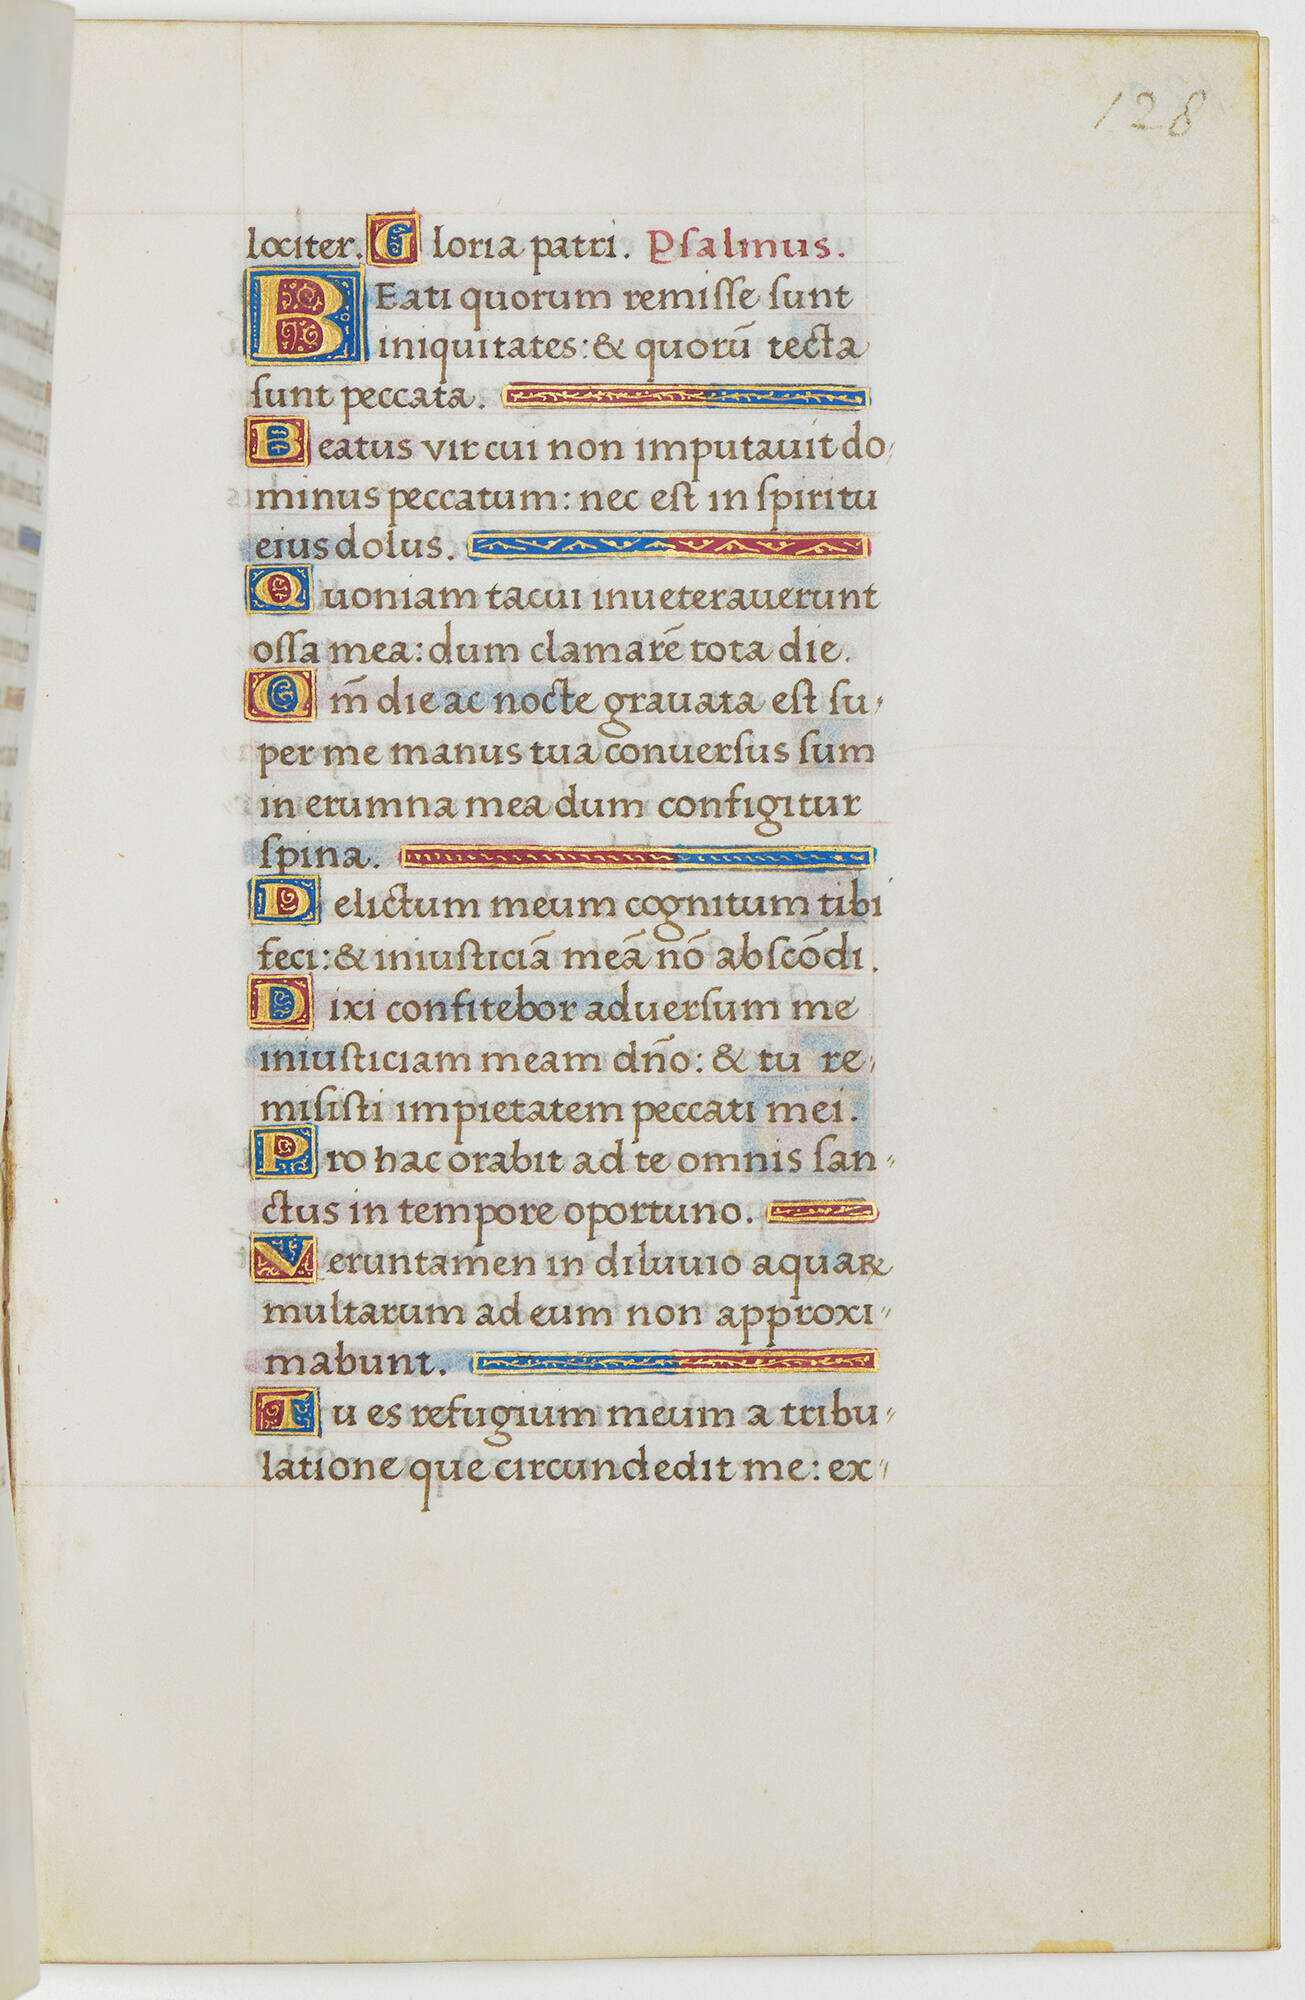 128
lociter. Gloria patri. Psalmus.
BEati quorum remisse sunt
iniquitates: & quorū tecta
sunt peccata.
Beatus vir cui non imputauit do,
minus peccatum: nec est in spiritu
eius dolus.
Quoniam tacui inueterauerunt
ossa mea: dum clamarē tota die.
Qm̄ die ac nocte grauata est su,
per me manus tua conuersus sum
in erumna mea dum configitur
spina.
Delictum meum cognitum tibi
feci: & iniusticiā meā nō abscōdi.
Dixi confitebor aduersum me
iniusticiam meam dño: & tu re,
misisti impietatem peccati mei.
Pro hac orabit ad te omnis san〃
ctus in tempore oportuno.
Veruntamen in diluuio aquaꝝ
multarum ad eum non approxi〃
mabunt.
Tu es refugium meum a tribu〃
latione que circundedit me: ex〃